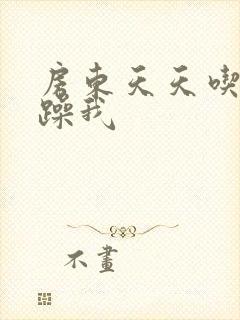 房東天天喫
躁我
不畫